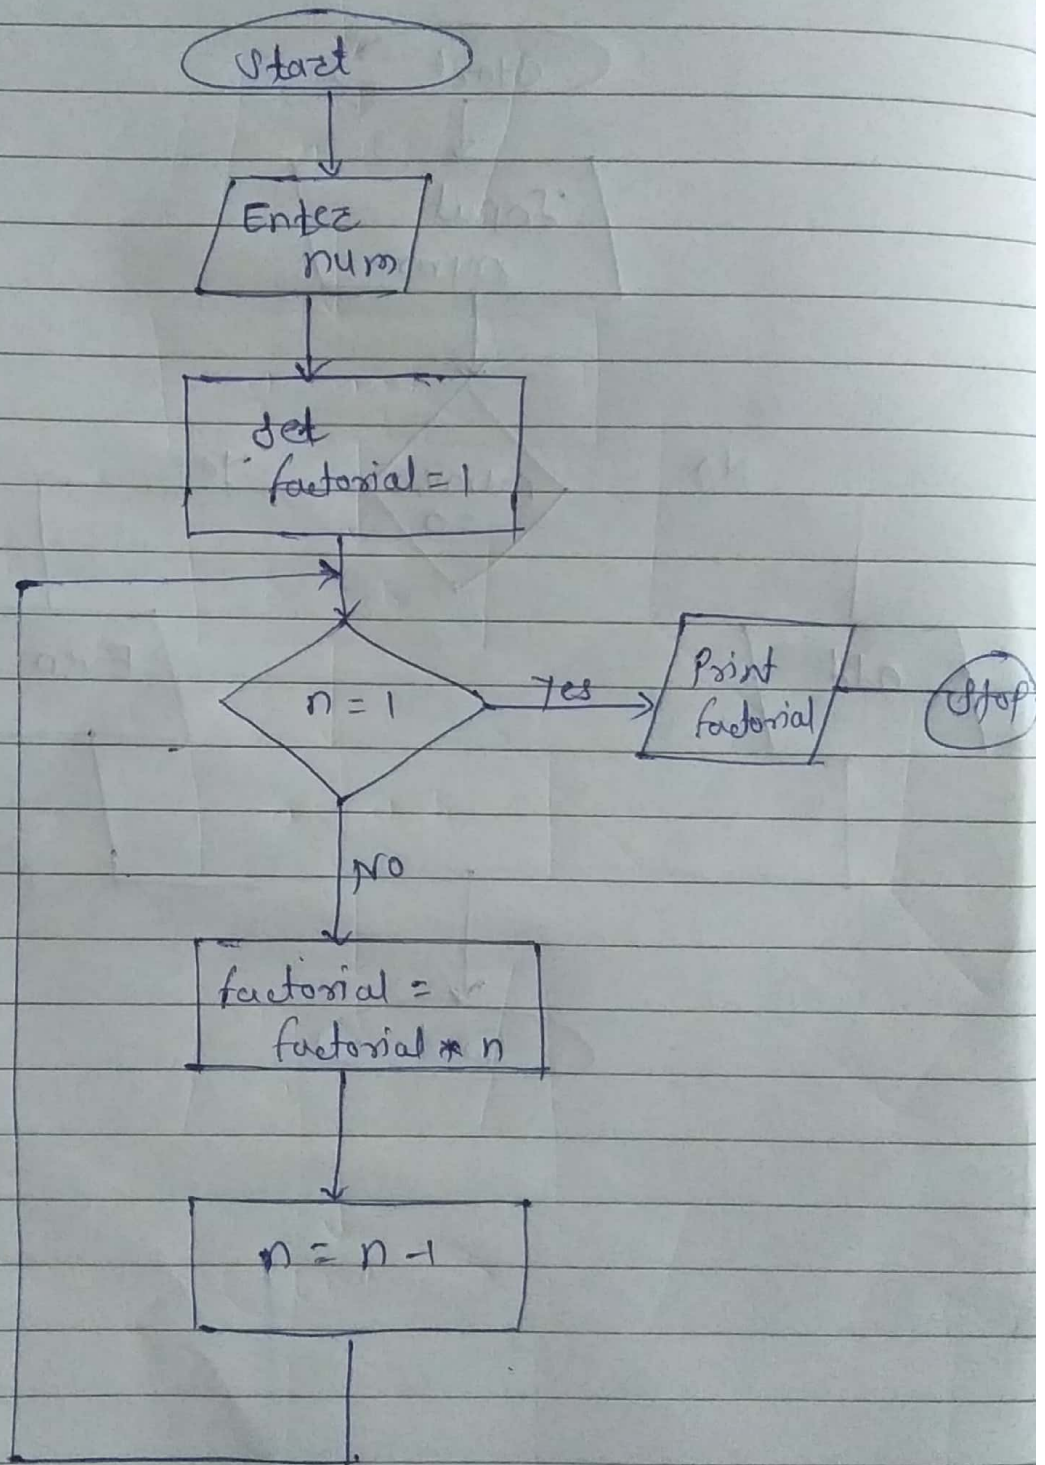 Start
Enter
num
Set
factorial = 1
n = 1
Yes
Print
factorial
Stop
NO
factorial =
factorial * n
n = n - 1